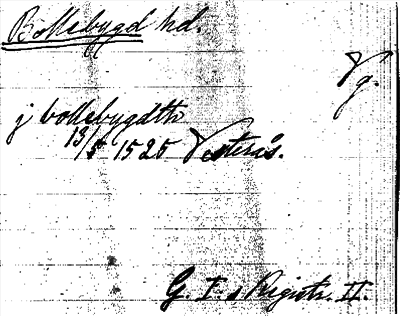 Bollebygd hd.
Vg.
j bollebygdth
13/5 1525 Vesterås.
G. I. s Registr. II.